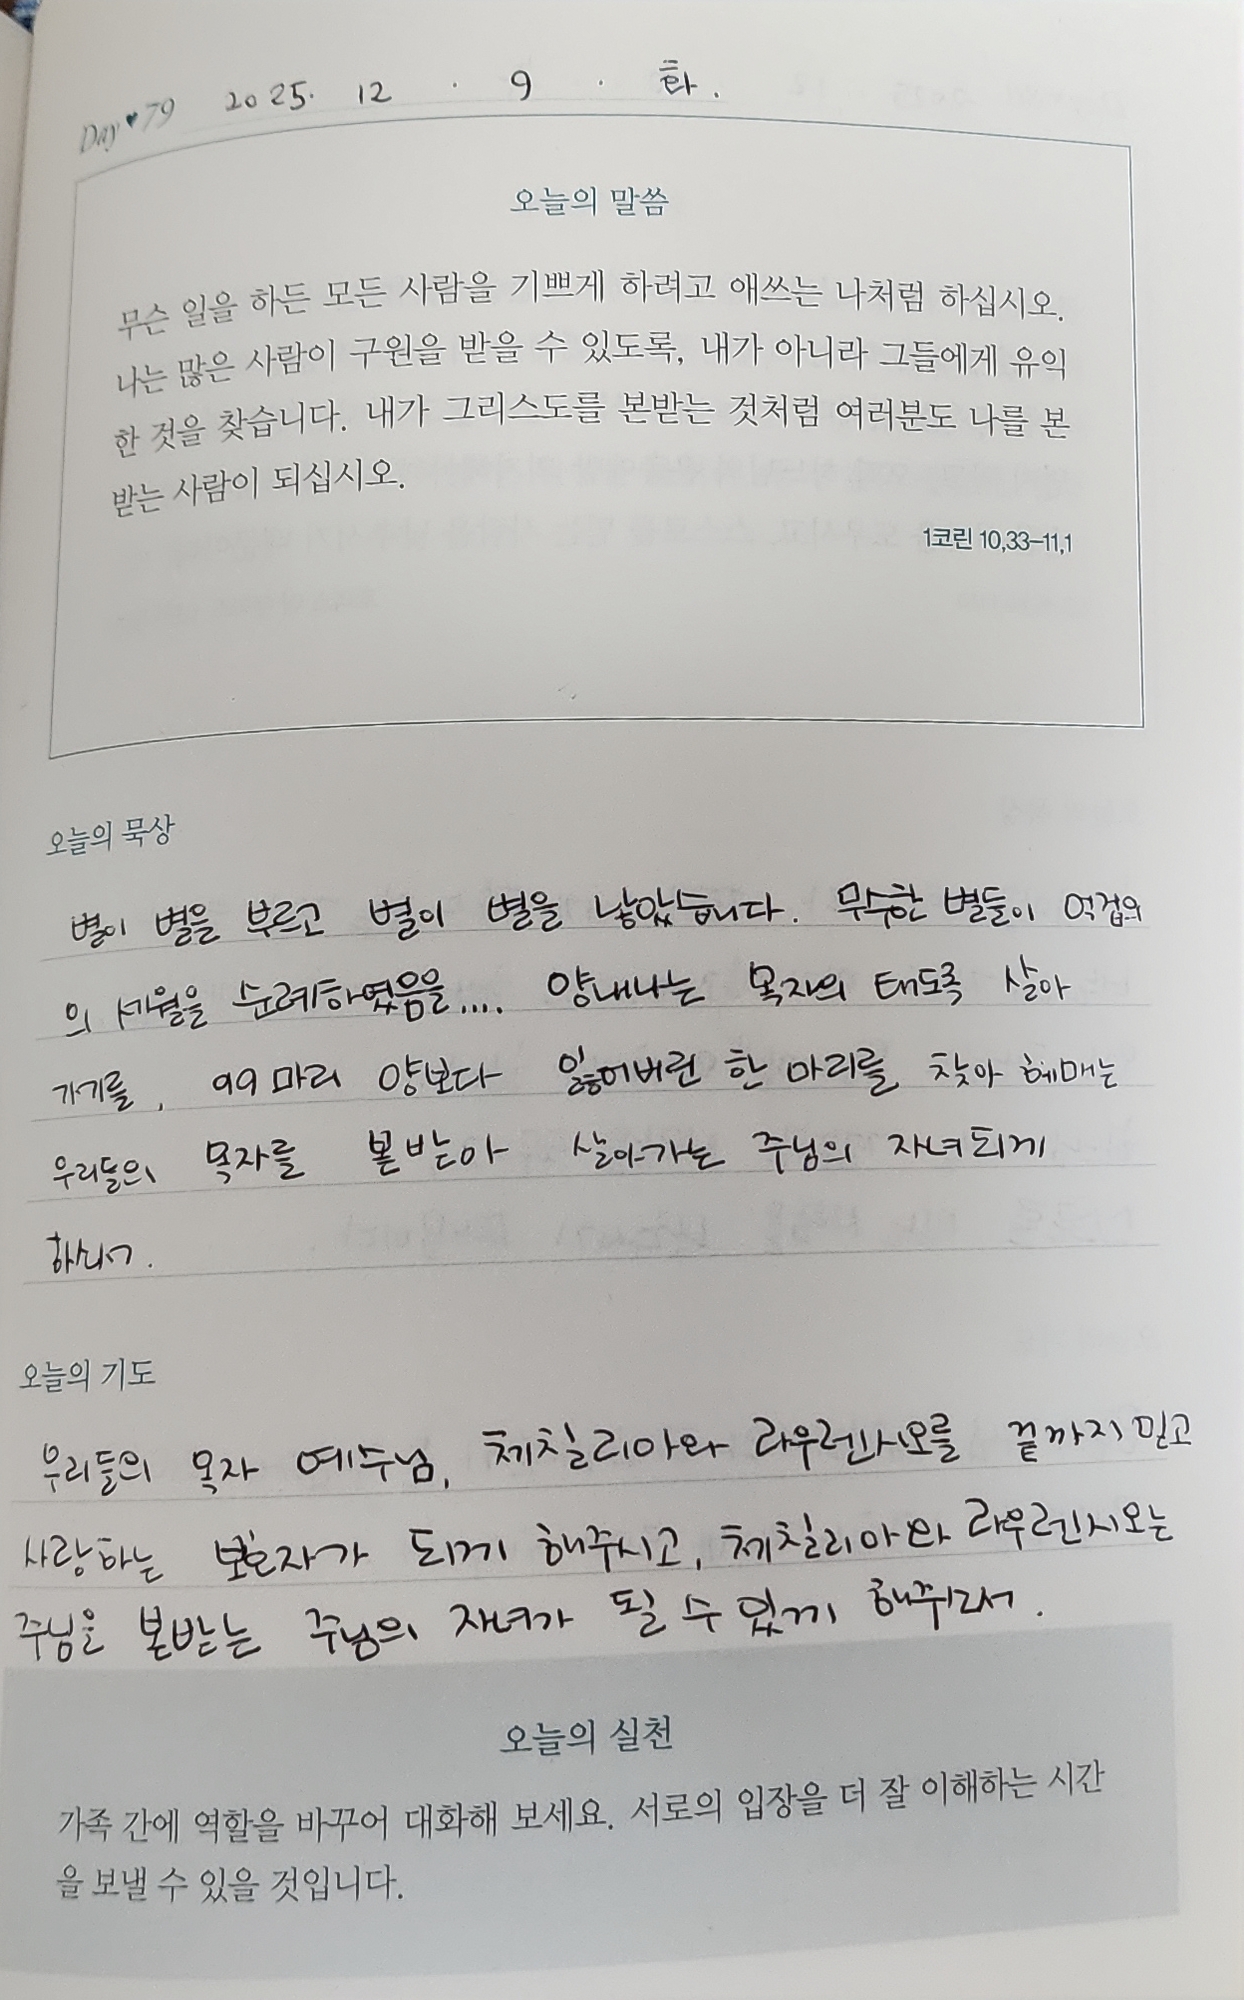 Day♥79 2025. 12 . 9 . 화.
오늘의 말씀
무슨 일을 하든 모든 사람을 기쁘게 하려고 애쓰는 나처럼 하십시오.
나는 많은 사람이 구원을 받을 수 있도록, 내가 아니라 그들에게 유익
한 것을 찾습니다. 내가 그리스도를 본받는 것처럼 여러분도 나를 본
받는 사람이 되십시오.
1코린 10,33-11,1
오늘의 묵상
별이 별을 부르고 별이 별을 낳았습니다. 무수한 별들이 억겁의
의 세월을 순례하였음을.... 양내나는 목자의 태도록 살아
가기를, 99마리 양보다 잃어버린 한 마리를 찾아 헤매는
우리들의 목자를 본받아 살아가는 주님의 자녀되게
하소서.
오늘의 기도
우리들의 목자 예수님, 체칠리아와 라우렌시오를 끝까지 믿고
사랑하는 보호자가 되게 해주시고, 체칠리아와 라우렌시오는
주님을 본받는 주님의 자녀가 될 수 있게 해주소서.
오늘의 실천
가족 간에 역할을 바꾸어 대화해 보세요. 서로의 입장을 더 잘 이해하는 시간
을 보낼 수 있을 것입니다.